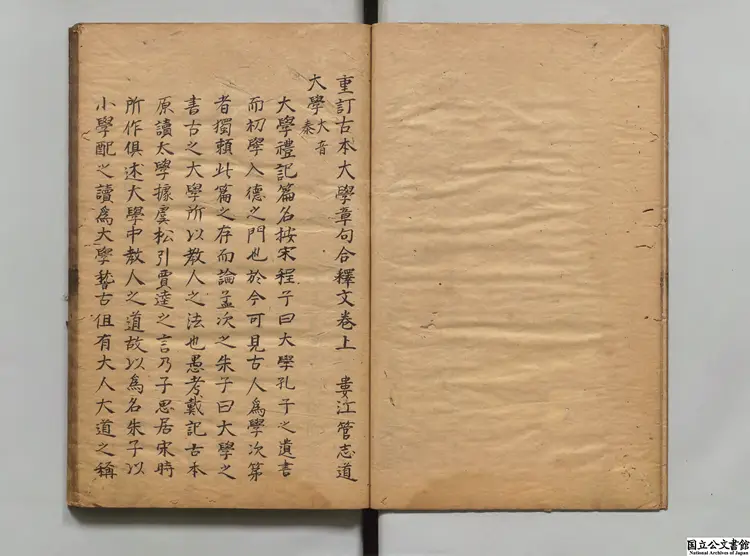 重訂古本大學章句合釋文卷上　婁江管志道
大學大音泰
大學禮記篇名按宋程子曰大學孔子之遺書
而初學入德之門也於今可見古人為學次第
者獨賴此篇之存而論孟次之朱子曰大學之
書古之大學所以教人之法也愚考戴記古本
原讀太學據虞松引賈逵之言乃子思居宋時
所作俱述大學中教人之道故以為名朱子以
小學配之讀為大學稽古但有大人大道之稱
国立公文書館
National Archives of Japan